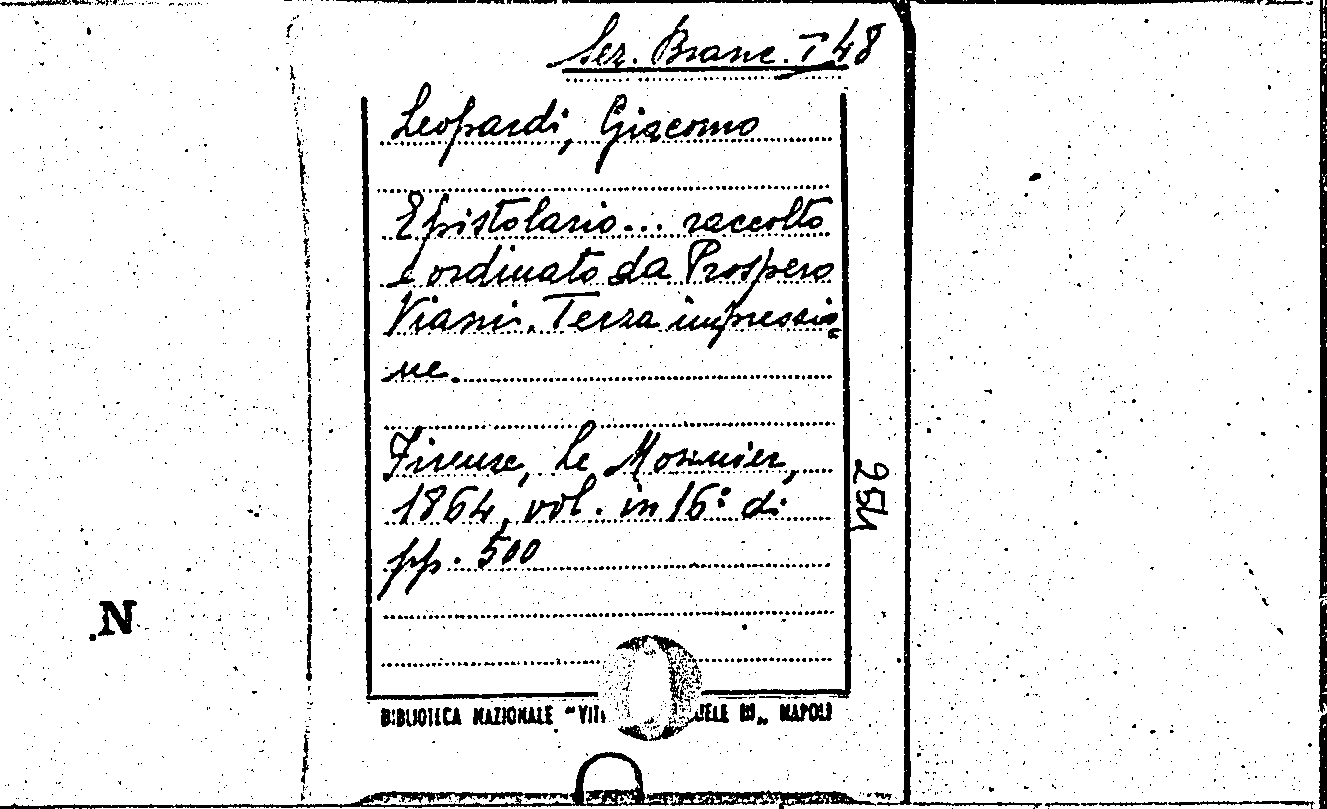 Sez. Branc. I 48
Leopardi, Giacomo
Epistolario... raccolto
e ordinato da Prospero
Viani. Terza impressio=
ne.
Firenze, Le Monnier,
1864, vol. in 16° di
pp. 500
254
N
BIBLIOTECA NAZIONALE "VITT UELE III„ NAPOLI